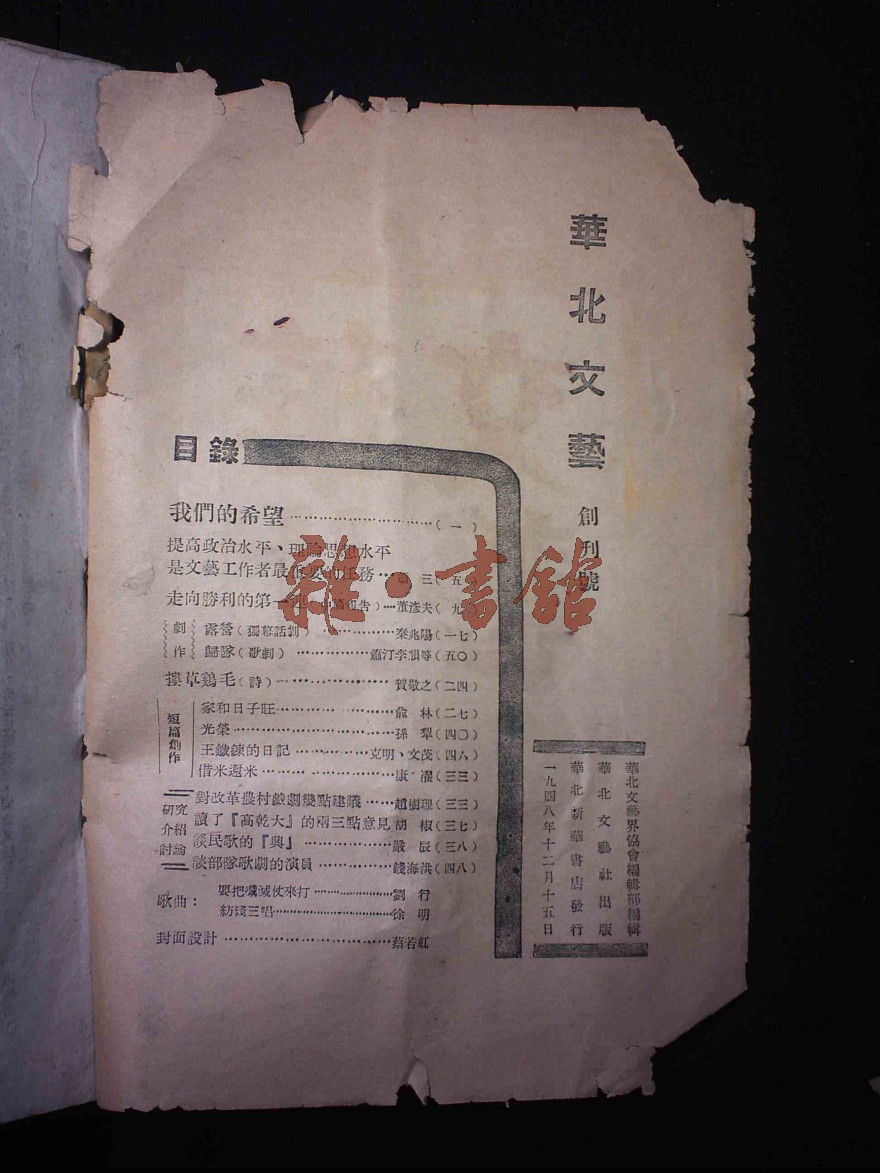 華北文藝 創刊號
華北文藝界協會編輯部編輯
華北文藝社出版
華北新華書店發行
一九四八年十二月十五日
目錄
我們的希望……(一)
提高政治水平、理論思想水平
是文藝工作者最 要的任務… 三(五)
走向勝利的第一連 …董彥夫(九)
劇作
露營(獨幕話劇)……秦兆陽(一七)
歸隊(歌劇)……蕭汀李 等(五〇)
摟草鷄毛(詩)……賀敬之(二四)
短篇創作
家和日子旺……俞林(二七)
光榮……孫犂(四〇)
王鐵鍊的日記……克明、文茂(四六)
借米還米……康濯(三三)
研究介紹討論
對改革農村戲劇幾點建議……趙樹理(三三)
讀了『高乾大』的兩三點意見 胡椒(三七)
談民歌的『興』……嚴辰(三八)
談部隊歌劇的演員……錢海洪(四八)
歌曲：
要把殲滅仗來打……劉行
紡綫三唱……徐明
封面設計……蔡若虹
雜·書館